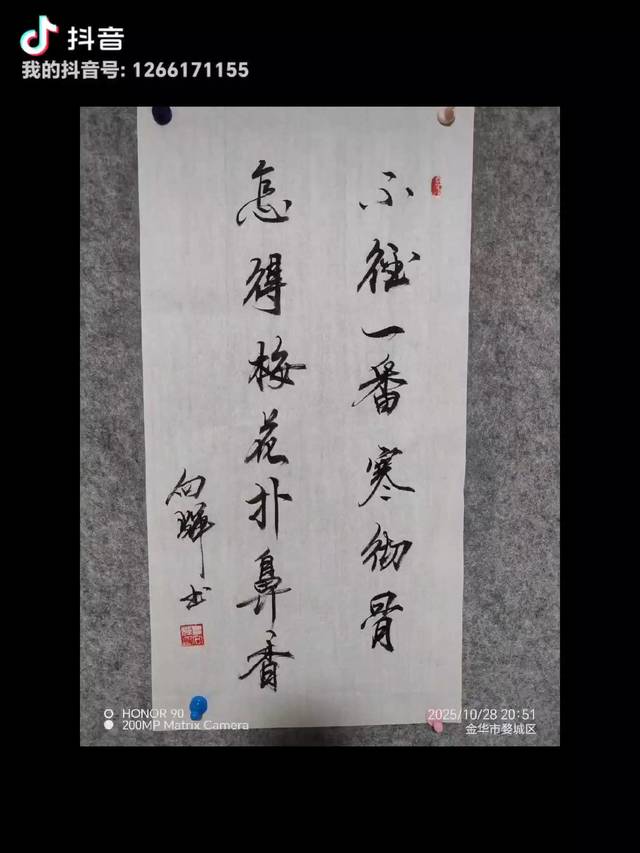 抖音
我的抖音号: 1266171155
不径一番寒彻骨
怎得梅花扑鼻香
向晖书
HONOR 90
200MP Matrix Camera
2025/10/28 20:51
金华市婺城区